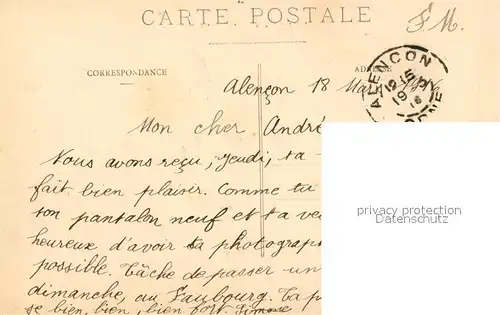 CARTE POSTALE
F. M.
CORRESPONDANCE
ALENÇON
Alençon 18
Mon cher André
Nous avons reçu, jeudi, ta
fait bien plaisir. Comme tu
ton pantalon neuf et ta
heureux d'avoir ta photograph
possible. Tâche de passer un
dimanche, au Faubourg. Ta
se bien, bien, bien fort. Simone
privacy protection
Datenschutz